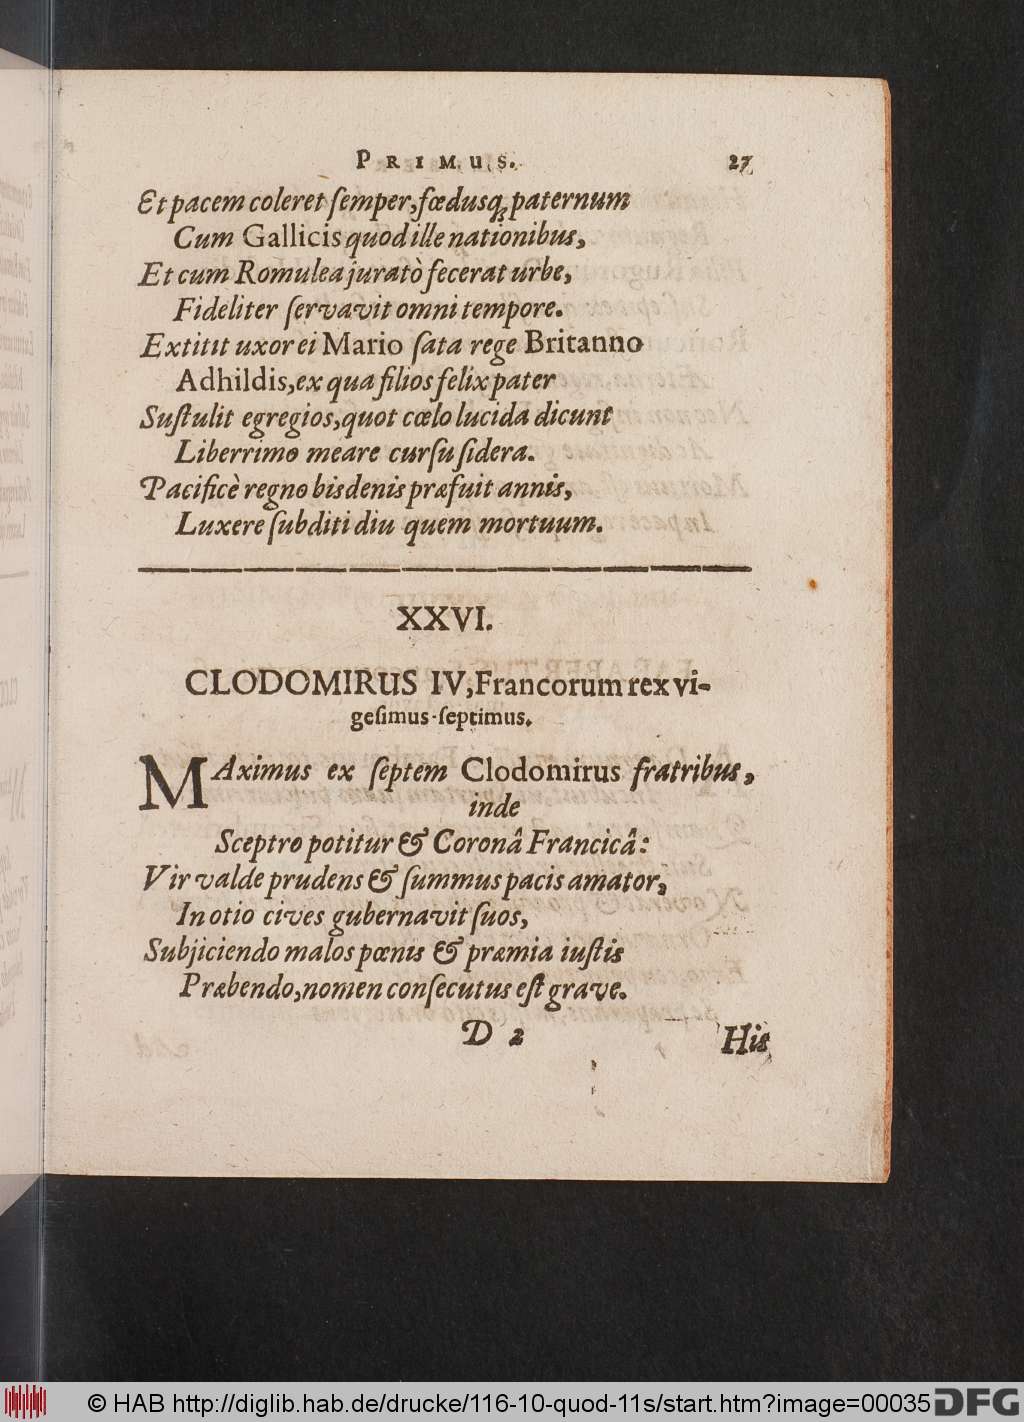 PRIMUS. 27
Et pacem coleret ſemper, fœdusq́; paternum
Cum Gallicis quod ille nationibus,
Et cum Romulea juratò fecerat urbe,
Fideliter ſervavit omni tempore.
Extitit uxor ei Mario ſata rege Britanno
Adhildis, ex qua filios felix pater
Suſtulit egregios, quot cœlo lucida dicunt
Liberrimo meare curſu ſidera.
Pacificè regno bis denis præfuit annis,
Luxere ſubditi diu quem mortuum.
XXVI.
CLODOMIRUS IV, Francorum rex vi-
geſimus-ſeptimus.
MAximus ex ſeptem Clodomirus fratribus,
inde
Sceptro potitur & Coronâ Francicâ:
Vir valde prudens & ſummus pacis amator,
In otio cives gubernavit ſuos,
Subjiciendo malos pœnis & præmia iuſtis
Præbendo, nomen conſecutus eſt grave.
D 2 His
© HAB http://diglib.hab.de/drucke/116-10-quod-11s/start.htm?image=00035 DFG